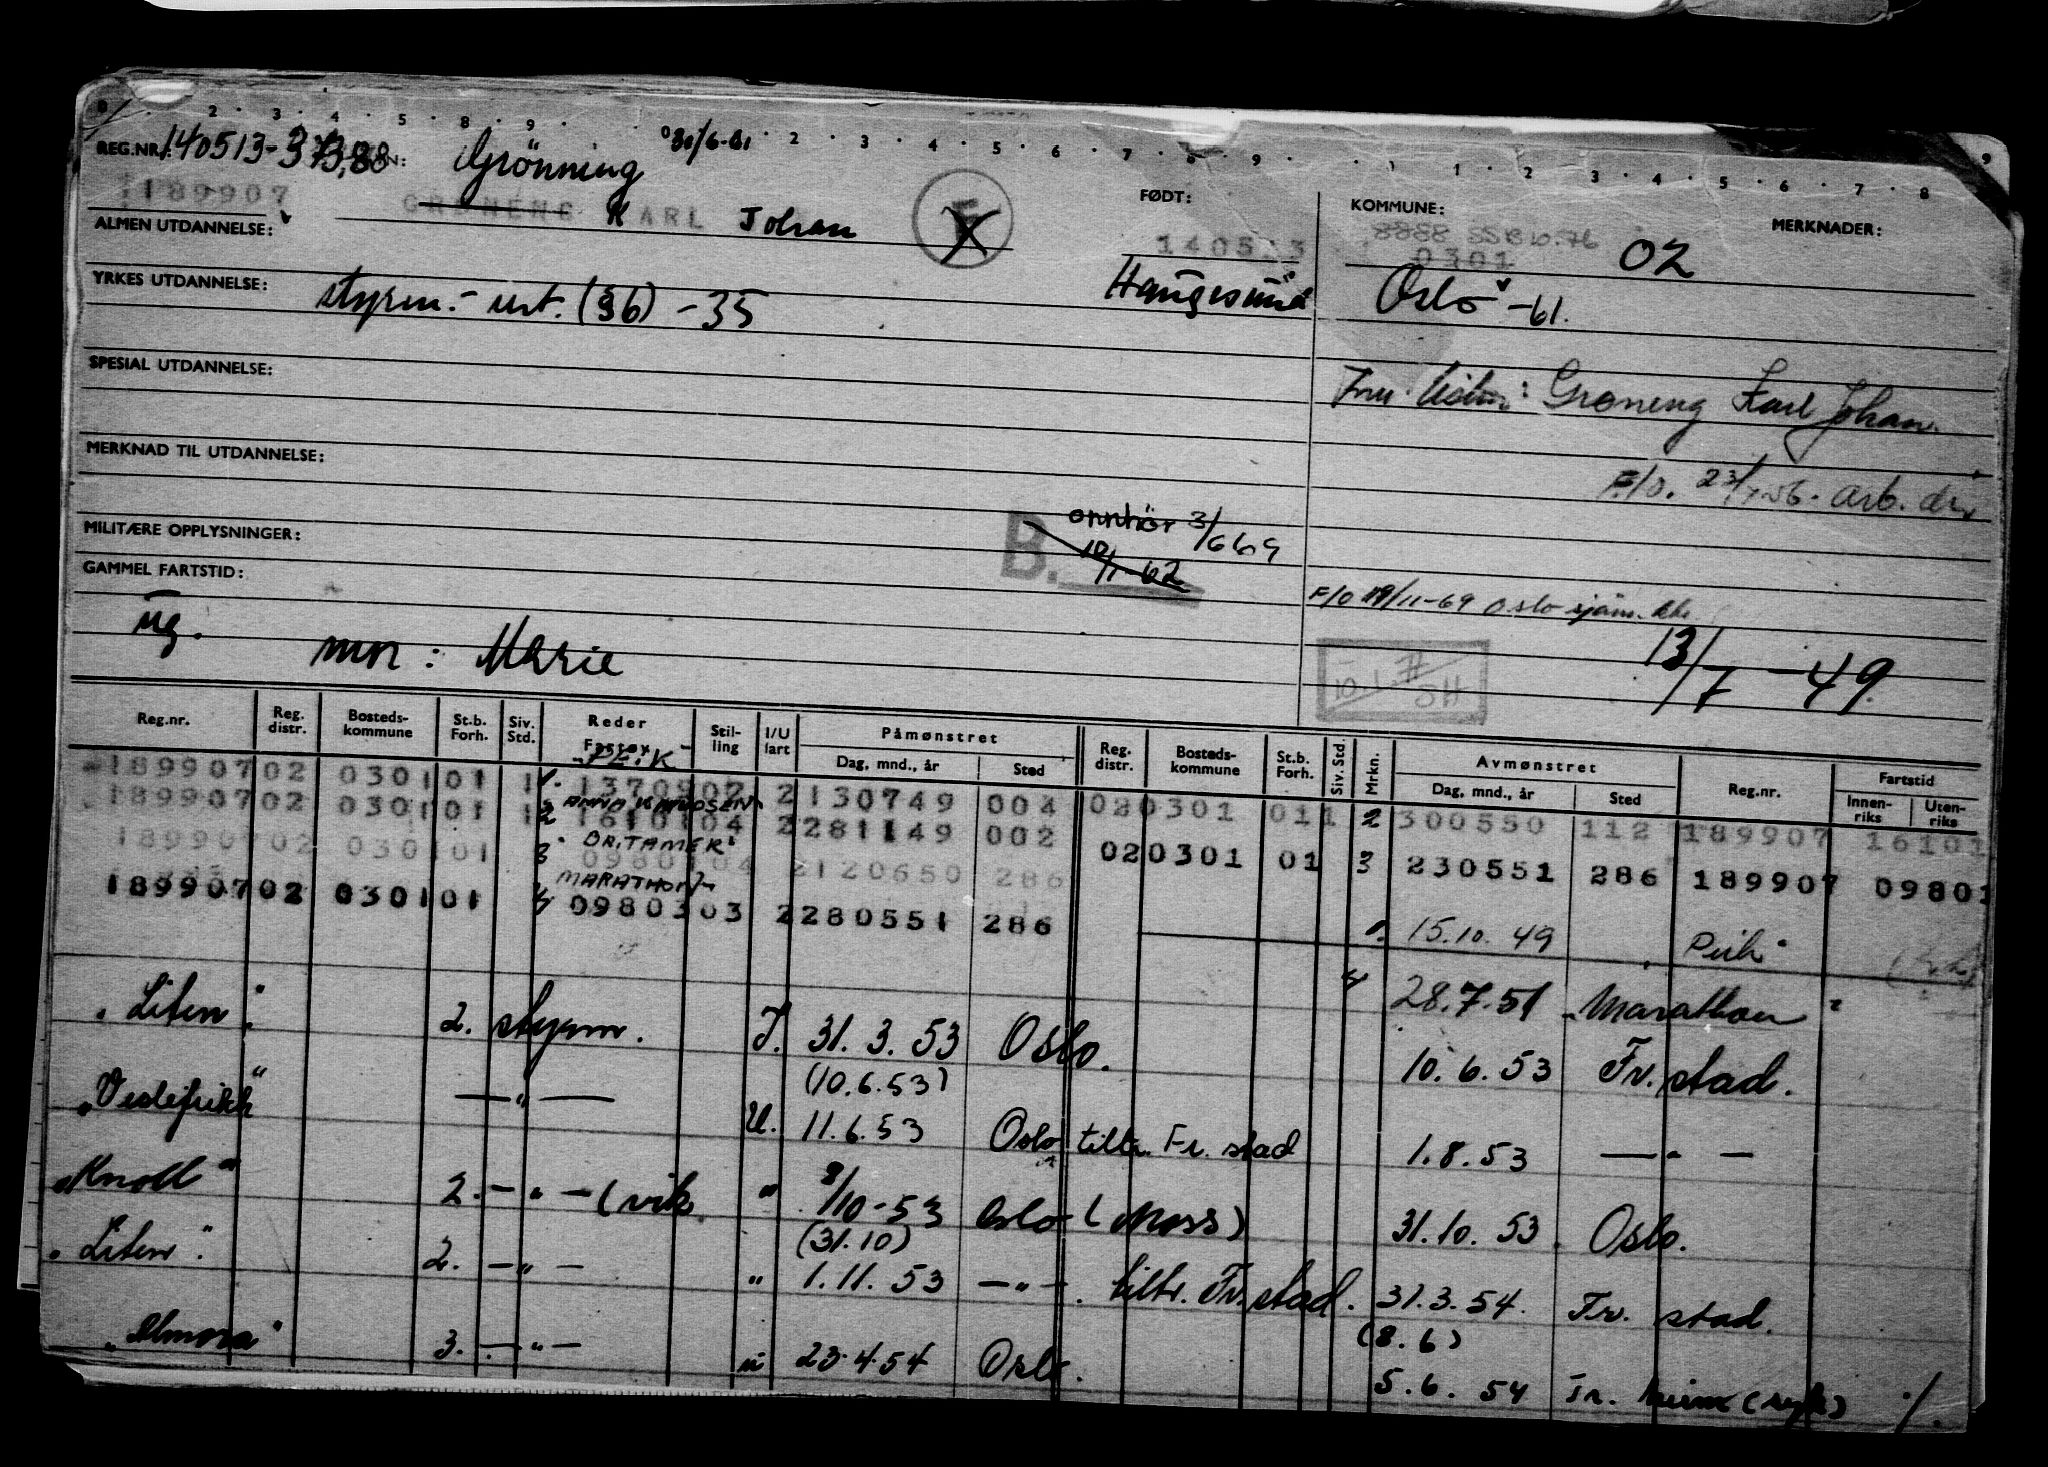 0 2 · 3 · 4 · 5 · 8 · 9 · 0 30/6-61 · 2 · 3 · 4 · 5 · 6 · 7 · 8 · 9 · 1 · 2 · 3 · 4 · 5 · 6 · 7 · 8 9
REG.NR.: 140513-37388 Grönning
189907 GRØNENG KARL Johan
FØDT: KOMMUNE: MERKNADER:
ALMEN UTDANNELSE:
140513 8888 SSB 10.76 0301 02
YRKES UTDANNELSE: styrm.- urt. (§6) -35 Haugesund Oslo -61.
SPESIAL UTDANNELSE: Groneng Karl Johan.
MERKNAD TIL UTDANNELSE: F/O. 23/ 56. arb. dir.
MILITÆRE OPPLYSNINGER: B. 3/6 69
10/1-62
GAMMEL FARTSTID: F/O 19/11-69 Oslo sjøm.
ug. mn : Marie 13/7 -49.
Reg.nr. Reg. distr. Bosteds-kommune St.b. Forh. Siv. Std. Reder Fartøy Stil-ling I/U fart Påmønstret Dag, mnd., år Sted Reg. distr. Bosteds-kommune St.b. Forh. Siv. Std. Mrkn. Avmønstret Dag, mnd., år Sted Reg.nr. Fartstid Innen-riks Uten-riks
"PEIK"
189907 02 0301 01 1 1. 1370902 2 130749 004 02 0301 01 1 2 300550 112 189907 16101
ANNA KNUDSEN
189907 02 0301 01 1 2 1610104 2 281149 002 02 0301 01 3 230551 286 189907 09801
"BRITAMER"
189907 02 0301 01 3 0980104 2 120650 286
"MARATHON"
189907 02 0301 01 4 0980303 2 280551 286 1. 15.10. 49 "Peik"
4 28.7.51 "Marathon"
"Liten" 2. styrm. I. 31. 3. 53 Oslo. 10. 6. 53 Fr. stad.
(10.6.53)
"Veslefrikk" — " — U. 11.6.53 Oslo tiltr. Fr. stad 1.8.53 — " —
"Knoll" 2. — " — (vik " 8/10-53 Oslo (Moss) 31.10. 53. Oslo.
(31.10)
"Liten". 2. — " — " 1.11. 53 — " —. tiltr. Fr. stad. 31.3. 54. Fr. stad.
(8.6)
"Almora" 3. — " — u 23.4.54 Oslo. 5.6. 54 Tr. heim (syk) ./.